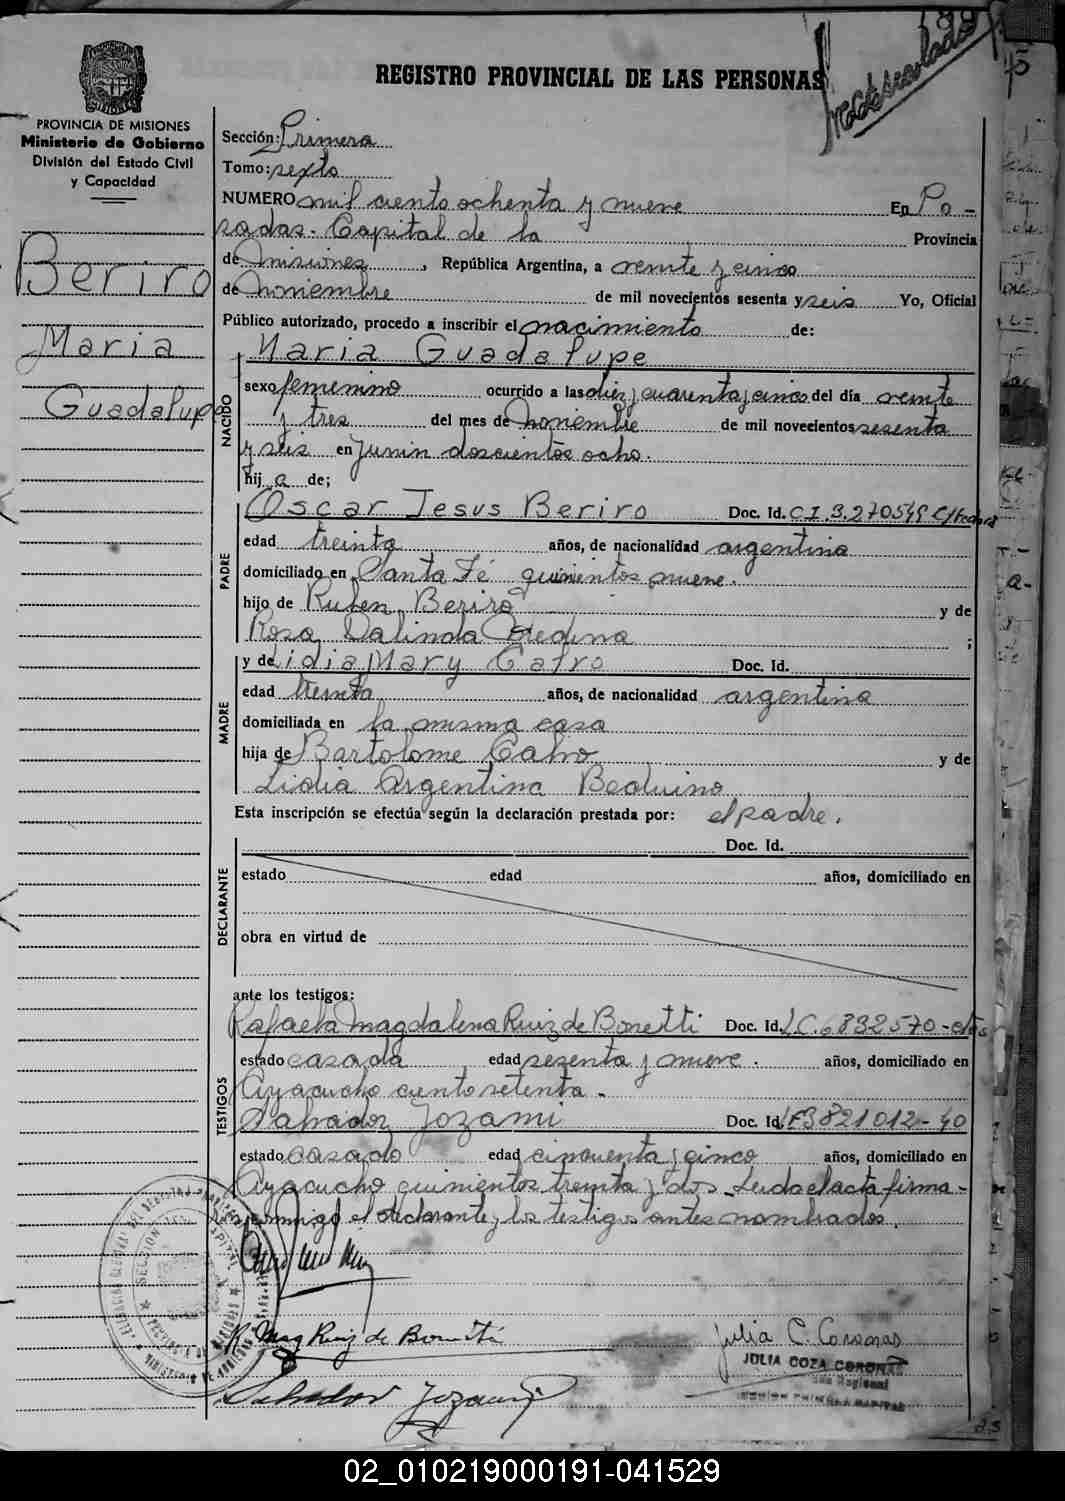 REGISTRO PROVINCIAL DE LAS PERSONAS
Matriculado
PROVINCIA DE MISIONES
Ministerio de Gobierno
División del Estado Civil
y Capacidad
Beriro
Maria
Guadalupe
Sección: Primera
Tomo: sexto
NUMERO mil ciento ochenta y nueve En Po-
sadas. Capital de la Provincia
de misiones, República Argentina, a veinte y cinco
de noviembre de mil novecientos sesenta y seis Yo, Oficial
Público autorizado, procedo a inscribir el nacimiento de:
Maria Guadalupe
NACIDO
sexo femenino ocurrido a las diez y cuarenta y cinco del día veinte
y tres del mes de Noviembre de mil novecientos sesenta
y seis en Junin doscientos ocho.
hij a de;
PADRE
Oscar Jesus Beriro Doc. Id. C.I. 3.270549
edad treinta años, de nacionalidad argentina
domiciliado en Santa Fé quinientos nueve.
hijo de Ruben Beriro y de
Rosa Dalinda ;
MADRE
y de Lidia Mary Cafro Doc. Id.
edad treinta años, de nacionalidad argentina
domiciliada en la misma casa
hija de Bartolome y de
Lidia Argentina Beduino
Esta inscripción se efectúa según la declaración prestada por: el padre.
DECLARANTE
Doc. Id.
estado edad años, domiciliado en
obra en virtud de
ante los testigos:
TESTIGOS
Rafaela Magdalena Ruiz de Bonetti Doc. Id. LC. 6832570
estado casada edad sesenta y nueve. años, domiciliado en
Ayacucho ciento setenta.
Salvador Jozami Doc. Id. 3821012-40
estado casado edad cincuenta y cinco años, domiciliado en
Ayacucho quinientos treinta y dos. Leida el acta firma-
conmigo el declarante y los testigos antes nombrados.
R. Mag Ruiz de Bonetti
Julia C. Coronas
JULIA COZA CORONAS
Salvador Jozami
02_010219000191-041529